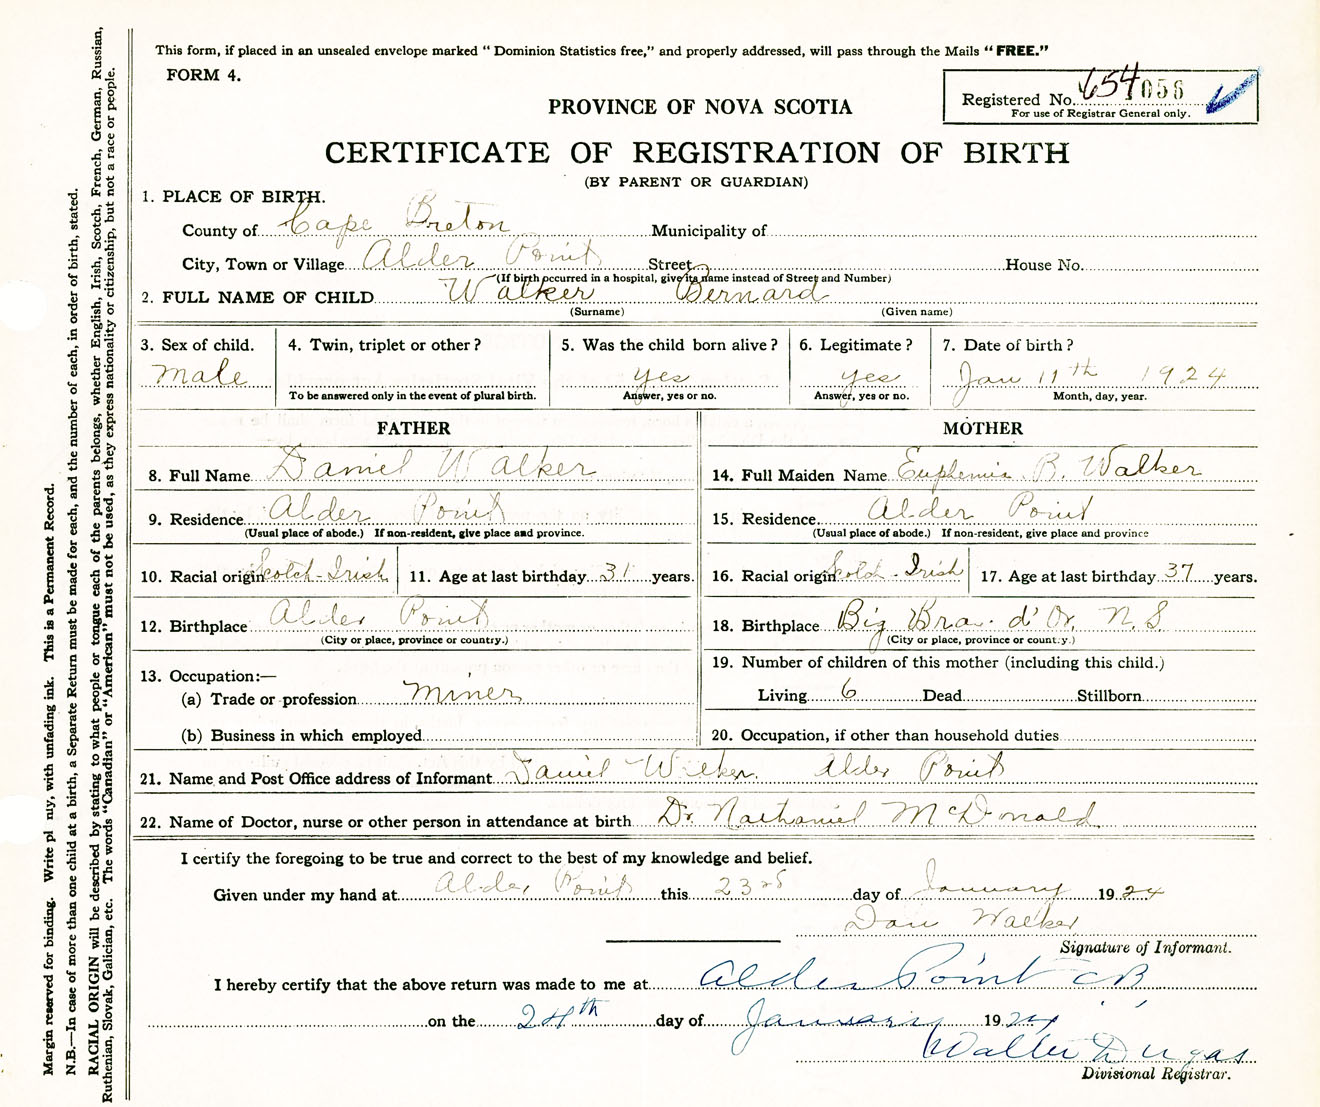 This form, if placed in an unsealed envelope marked “ Dominion Statistics free,” and properly addressed, will pass through the Mails “ FREE.”
FORM 4.
Registered No. 654 056
For use of Registrar General only.
PROVINCE OF NOVA SCOTIA
CERTIFICATE OF REGISTRATION OF BIRTH
(BY PARENT OR GUARDIAN)
1. PLACE OF BIRTH.
County of Cape Breton Municipality of
City, Town or Village Alder Point Street House No.
(If birth occurred in a hospital, give its name instead of Street and Number)
2. FULL NAME OF CHILD Walker Bernard
(Surname) (Given name)
3. Sex of child. 4. Twin, triplet or other ? 5. Was the child born alive ? 6. Legitimate ? 7. Date of birth ?
Male yes yes Jan 11th 1924
To be answered only in the event of plural birth. Answer, yes or no. Answer, yes or no. Month, day, year.
FATHER MOTHER
8. Full Name Daniel Walker 14. Full Maiden Name Euphemia B. Walker
9. Residence Alder Point 15. Residence Alder Point
(Usual place of abode.) If non-resident, give place and province. (Usual place of abode.) If non-resident, give place and province
10. Racial origin Scotch-Irish 11. Age at last birthday 31 years. 16. Racial origin Scotch-Irish 17. Age at last birthday 37 years.
12. Birthplace Alder Point 18. Birthplace Big Bras d'Or, N.S.
(City or place, province or country.) (City or place, province or country.)
13. Occupation:— 19. Number of children of this mother (including this child.)
(a) Trade or profession Miner Living 6 Dead Stillborn
(b) Business in which employed 20. Occupation, if other than household duties
21. Name and Post Office address of Informant Daniel Walker. Alder Point
22. Name of Doctor, nurse or other person in attendance at birth Dr. Nathaniel McDonald
I certify the foregoing to be true and correct to the best of my knowledge and belief.
Given under my hand at Alder Point this 23rd day of January 1924
Dan Walker
Signature of Informant.
I hereby certify that the above return was made to me at Alder Point CB
on the 24th day of January 1924
Walter Dugas
Divisional Registrar.
Margin reserved for binding. Write pl nly, with unfading ink. This is a Permanent Record.
N.B.—In case of more than one child at a birth, a Separate Return must be made for each, and the number of each, in order of birth, stated.
RACIAL ORIGIN will be described by stating to what people or tongue each of the parents belongs, whether English, Irish, Scotch, French, German, Russian,
Ruthenian, Slovak, Galician, etc. The words “Canadian” or “American” must not be used, as they express nationality or citizenship, but not a race or people.